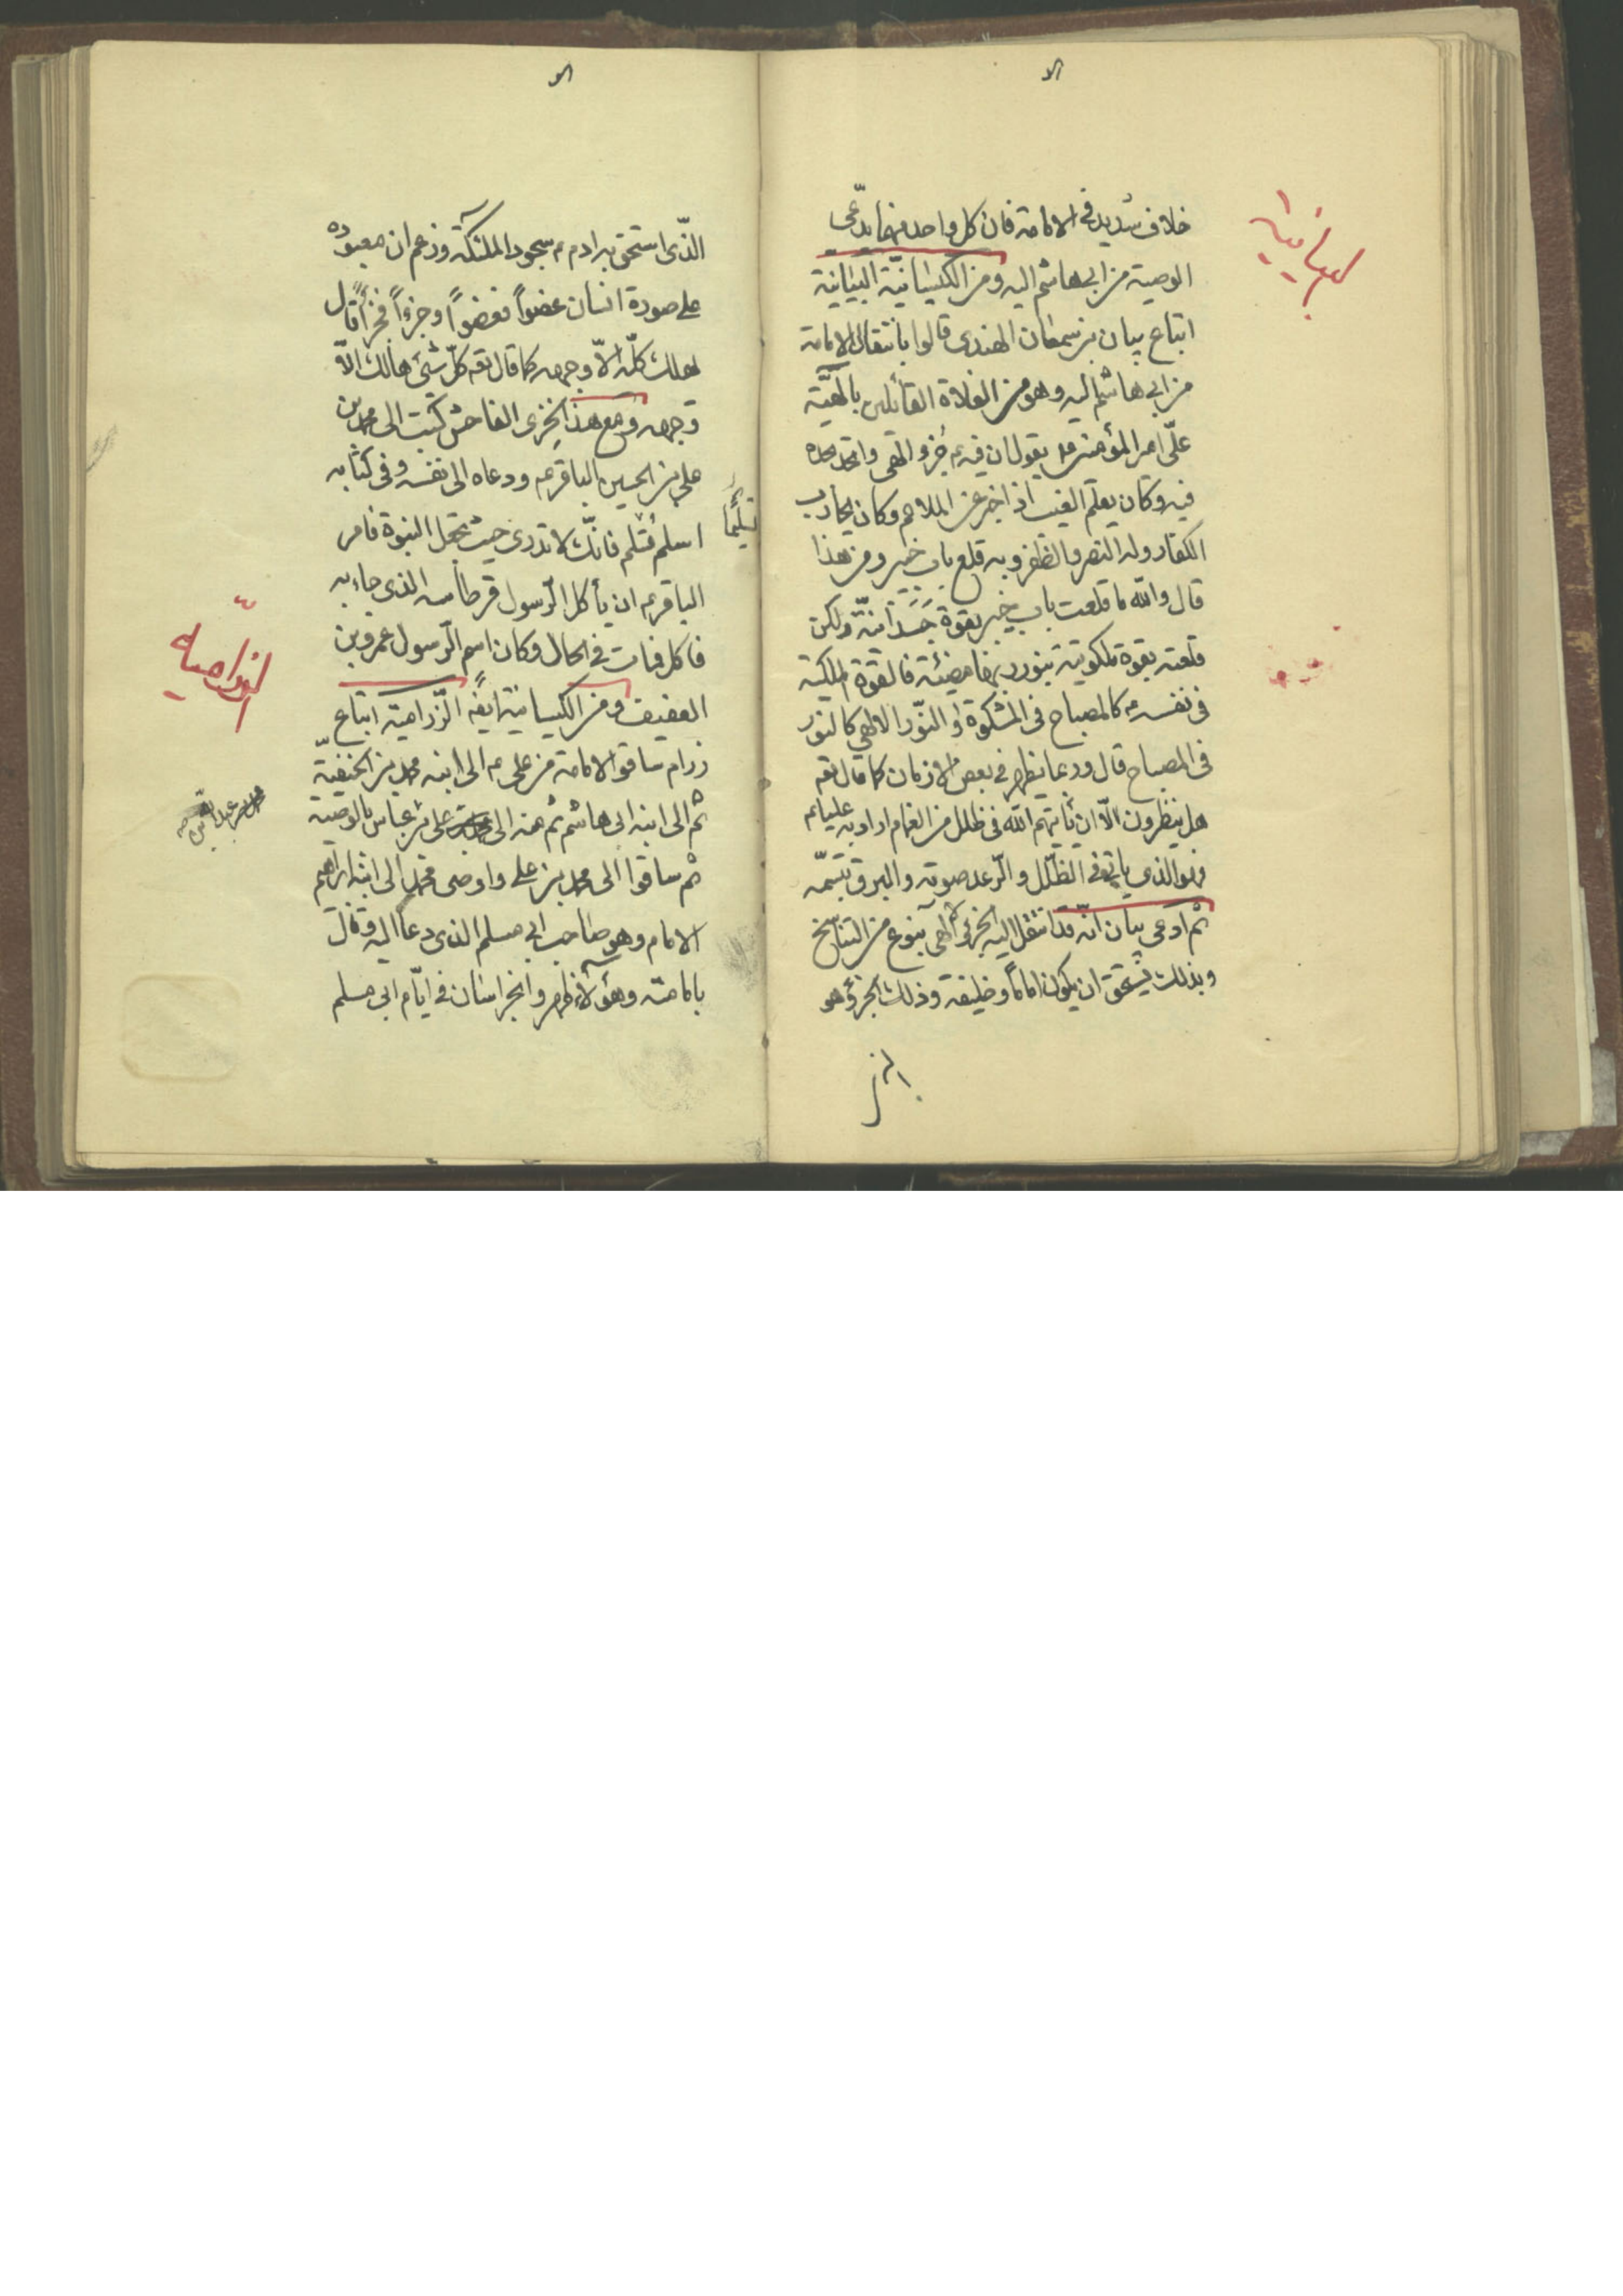 خلاف شديد فى الامامة فان كل واحد منهما يدّعى
البيانية
الوصية من ابى هاشم اليه ومن الكيسانيّة البيانية
اتباع بيان بن سمعان الهندى قالوا بانتقال الامامة
من ابى هاشم اليه وهو من الغلاة القائلين بالهيّة
علّى امير المؤمنين يقول ان فيه جزو الهى واتحد بجسده
فيه وكان يعلم الغيب اذا خبر عن الملاحم وكان يحارب
الكفار وله النصر والظفر وبه قلع باب خيبر ومن هذا
قال والله ما قلعت باب خيبر بقوة جَسَدانيّة ولكن
قلعته بقوة ملكوتية بنور ربها مضيئة فالقوة الملكية
فى نفسه كالمصباح فى المشكوة و النّور الالهى كالنور
فى المصباح قال وربما يظهر فى بعض الازمان كما قال تعه
هل ينظرون الّا ان يأتيهم الله فى ظلل من الغمام اراد به عليا عم
فهو الذى ياتى فى الظلل و الرّعد صوته والبرق تبسّمه
ثم ادعى بيان انّه قد انتقل اليه الجزئ الالهى بنوع من التناسخ
وبذلك يستحق ان يكون اماماً وخليفة وذلك الجزؤ هو
الذى
الذّى استحق به ادم عم سجود الملئكة وزعم ان معبوده
على صورة انسان عضواً فعضواً وجزءاً فجزأً قال
يهلك كلّه الاّ وجهه كما قال تعه كلّ شئ هالك الاّ
وجهه ومع هذا الخزى الفاحش كتب الى محمد بن
على بن الحسين الباقر عم ودعاه الى نفسه وفى كتابه
اسلم تُسْلم فانّك لا تدرى حيث يجعل النبوة فامر
الباقر عم ان يأكل الرّسول قرطاسه الذى جاء به
فاكل فمات فى الحال وكان اسم الرّسول عمر وبن
الرزامية
العفيف ومن الكيسانية ايضاً الرّزامية اتباع
رزام ساقوا الامامة من على عم الى ابنه محمد بن الحنفيّة
ثم الى ابنه ابى هاشم ثم منه الى على بن عباس بالوصية
ثم ساقوا الى محمد بن على واوصى محمد الى ابنه ابراهيم
الامام وهو صاحب ابى مسلم الذى دعا اليه وقال
بامامته وهؤلاء ظهروا بخراسان فى ايّام ابى مسلم